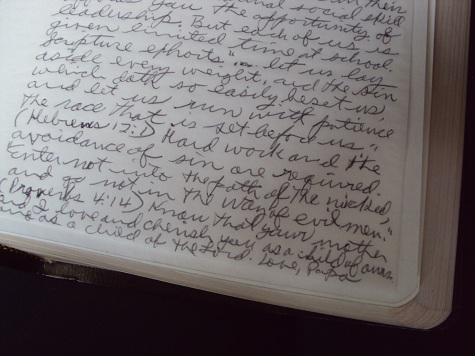 social skill
you the opportunity of
leadership. But each of us is
given limited time at school.
Scripture exhorts "... let us lay
aside every weight, and the sin
which doth so easily beset us,
and let us run with patience
the race that is set before us"
(Hebrews 12:1) Hard work and the
avoidance of sin are required.
"Enter not into the path of the wicked,
and go not in the way of evil men."
(Proverbs 4:14) Know that your mother
and I love and cherish you as a child of ours
as a child of the Lord. Love, Papa